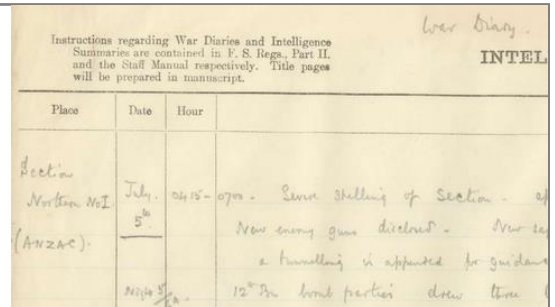 War Diary.
Instructions regarding War Diaries and Intelligence
Summaries are contained in F. S. Regs., Part II.
and the Staff Manual respectively. Title pages
will be prepared in manuscript.
INTEL
Place Date Hour
Section
Northern No I July. 0415- 0700 - Severe shelling of Section -
5th New enemy guns disclosed - New
(ANZAC). a tunnelling is appended for guidance
Night 5/ 12th Bn bomb parties drew three